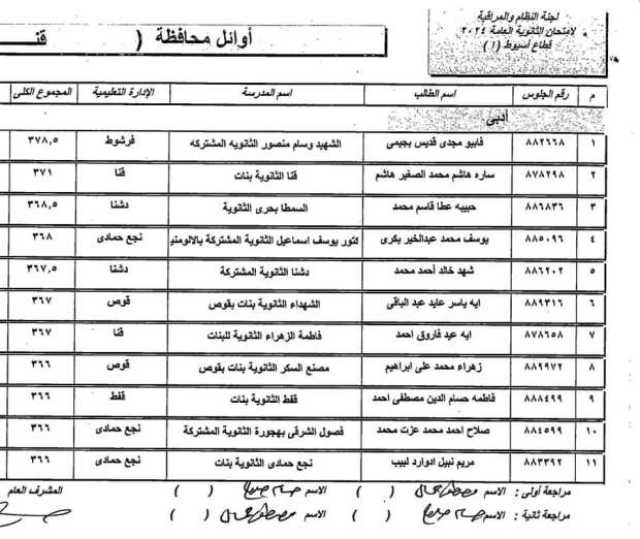 لجنة النظام والمراقبة
لامتحان الثانوية العامة ٢٠٢٤
قطاع أسيوط (١)
أوائل محافظة ( قنـ
م رقم الجلوس اسم الطالب اسم المدرسة الإدارة التعليمية المجموع الكلى
أدبى
١ ٨٨٢٦٦٨ فابيو مجدى قديس بجيمى الشهيد وسام منصور الثانويه المشتركه فرشوط ٣٧٨,٥
٢ ٨٧٨٢٩٨ ساره هاشم محمد الصغير هاشم قنا الثانوية بنات قنا ٣٧١
٣ ٨٨٦٨٣٦ حبيبه عطا قاسم محمد السمطا بحرى الثانوية دشنا ٣٦٨,٥
٤ ٨٨٥٠٩٦ يوسف محمد عبدالخير بكرى كتور يوسف اسماعيل الثانوية المشتركة بالالومني نجع حمادى ٣٦٨
٥ ٨٨٦٢٠٢ شهد خالد أحمد محمد دشنا الثانوية المشتركة دشنا ٣٦٧,٥
٦ ٨٨٩٣١٦ ايه ياسر عايد عبد الباقى الشهداء الثانوية بنات بقوص قوص ٣٦٧
٧ ٨٧٨٦٥٨ ايه عبد فاروق احمد فاطمة الزهراء الثانوية للبنات قنا ٣٦٧
٨ ٨٨٩٩٧٢ زهراء محمد على ابراهيم مصنع السكر الثانوية بنات بقوص قوص ٣٦٦
٩ ٨٨٨٤٩٩ فاطمه حسام الدين مصطفى احمد قفط الثانوية بنات قفط ٣٦٦
١٠ ٨٨٤٥٩٩ صلاح احمد محمد عزت محمد فصول الشرقى بهجورة الثانوية المشتركة نجع حمادى ٣٦٦
١١ ٨٨٣٣٩٢ مريم نبيل ادوارد لبيب نجع حمادى الثانوية بنات نجع حمادى ٣٦٦
مراجعة أولى : الاسم ( ) الاسم ( ) المشرف العام
مراجعة ثانية : الاسم ( ) الاسم ( )